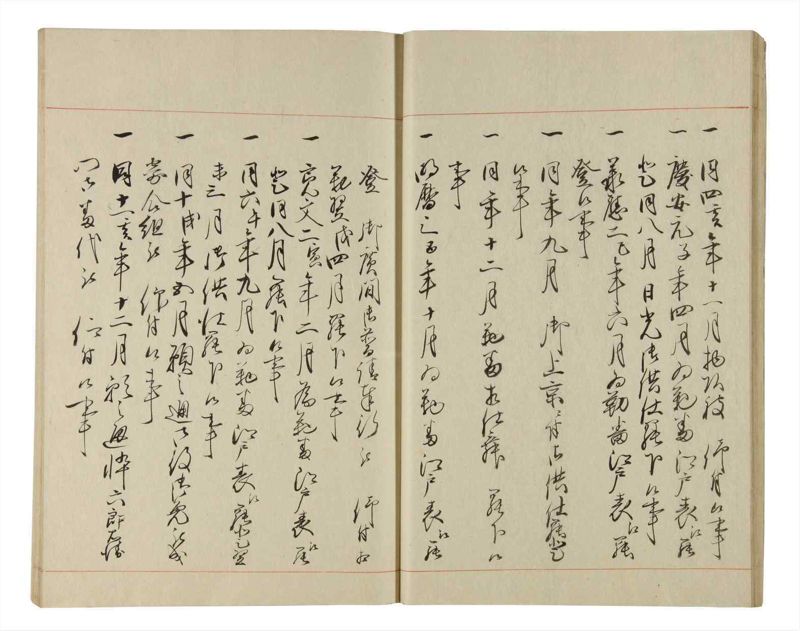 一 同四亥年十一月物頭役 仰付候事
一 慶安元子年四月為勤番江戸表江罷
登同八月日光御供仕罷下候事
一 承応二巳年六月為勤番江戸表江罷
登候事
一 同年九月 御上京之節御供仕罷登
候事
一 同年十二月勤番相仕舞 罷下候
事
一 明暦三酉年十月為勤番江戸表江罷
登 御広間御普請奉行被 仰付相
勤翌戌四月罷下候事
一 寛文二寅年二月為勤番江戸表江罷
登同八月罷下候事
一 同六午年九月為勤番江戸表江罷登翌
未三月御供仕罷下候事
一 同十戌年五月願之通御役御免被成
寄合組被 仰付候事
一 同十一亥年十二月願之通忰六郎左衛
門江番代被 仰付候事